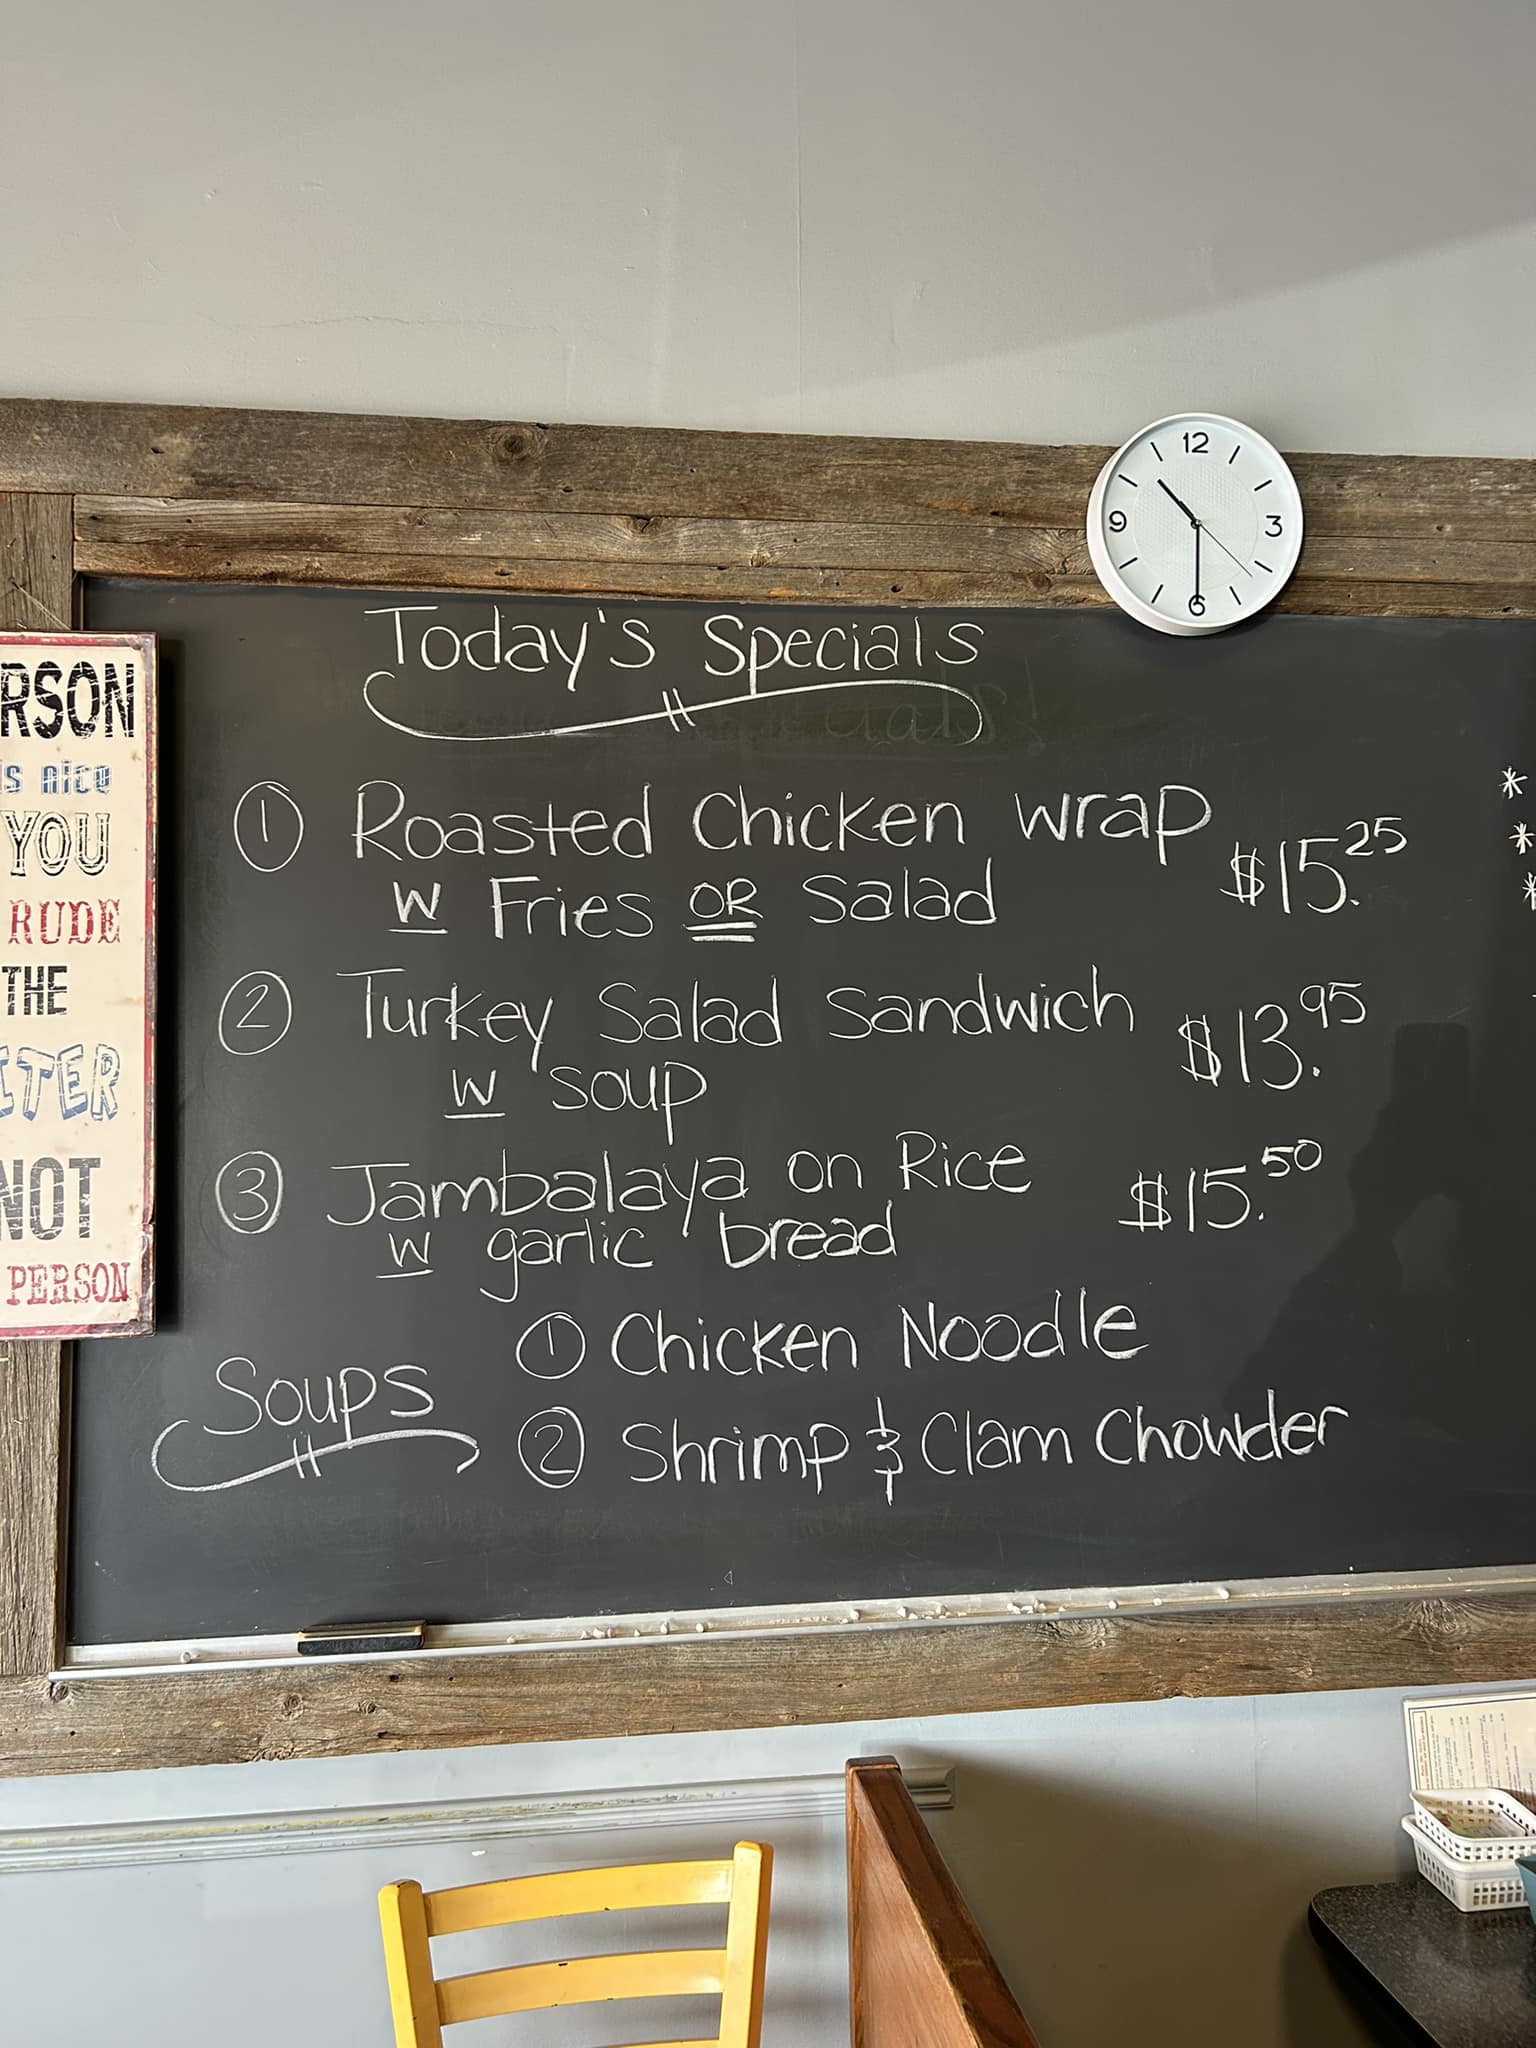 12
3
6
9
Today's Specials
① Roasted Chicken Wrap
W Fries OR Salad $15.25
② Turkey Salad Sandwich $13.95
W Soup
③ Jambalaya on Rice $15.50
W garlic bread
Soups
① Chicken Noodle
② Shrimp & Clam Chowder
RSON
is nice
YOU
RUDE
THE
ITER
NOT
PERSON
*
*
*